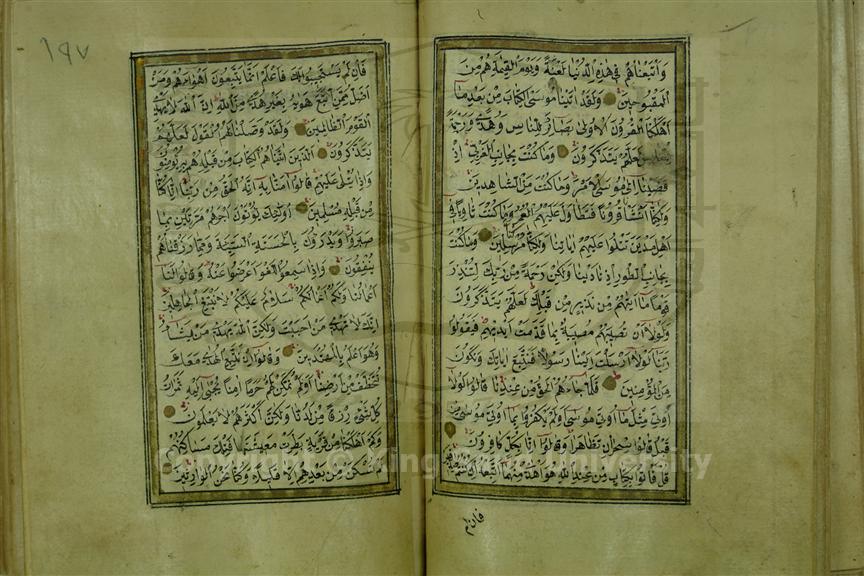 وَأَتْبَعْنَاهُمْ فِي هٰذِهِ الدُّنْيَا لَعْنَةً وَيَوْمَ الْقِيٰمَةِ هُمْ مِنَ
الْمَقْبُوحِينَ وَلَقَدْ اٰتَيْنَا مُوسَى الْكِتَابَ مِنْ بَعْدِ مَا
اَهْلَكْنَا الْقُرُونَ الْاُولٰى بَصَائِرَ لِلنَّاسِ وَهُدًى وَرَحْمَةً
لَعَلَّهُمْ يَتَذَكَّرُونَ وَمَا كُنْتَ بِجَانِبِ الْغَرْبِيِّ اِذْ
قَضَيْنَا اِلٰى مُوسَى الْاَمْرَ وَمَا كُنْتَ مِنَ الشَّاهِدِينَ
وَلٰكِنَّا اَنْشَأْنَا قُرُونًا فَتَطَاوَلَ عَلَيْهِمُ الْعُمُرُ وَمَا كُنْتَ ثَاوِيًا فِي
اَهْلِ مَدْيَنَ تَتْلُوا عَلَيْهِمْ اٰيَاتِنَا وَلٰكِنَّا كُنَّا مُرْسِلِينَ وَمَا كُنْتَ
بِجَانِبِ الطُّورِ اِذْ نَادَيْنَا وَلٰكِنْ رَحْمَةً مِنْ رَبِّكَ لِتُنْذِرَ
قَوْمًا مَا اَتٰيهُمْ مِنْ نَذِيرٍ مِنْ قَبْلِكَ لَعَلَّهُمْ يَتَذَكَّرُونَ
وَلَوْلَا اَنْ تُصِيبَهُمْ مُصِيبَةٌ بِمَا قَدَّمَتْ اَيْدِيهِمْ فَيَقُولُوا
رَبَّنَا لَوْلَا اَرْسَلْتَ اِلَيْنَا رَسُولًا فَنَتَّبِعَ اٰيَاتِكَ وَنَكُونَ
مِنَ الْمُؤْمِنِينَ فَلَمَّا جَاءَهُمُ الْحَقُّ مِنْ عِنْدِنَا قَالُوا لَوْلَا
اُوتِيَ مِثْلَ مَا اُوتِيَ مُوسٰى اَوَلَمْ يَكْفُرُوا بِمَا اُوتِيَ مُوسٰى مِنْ
قَبْلُ قَالُوا سِحْرَانِ تَظَاهَرَا وَقَالُوا اِنَّا بِكُلٍّ كَافِرُونَ
قُلْ فَأْتُوا بِكِتَابٍ مِنْ عِنْدِ اللّٰهِ هُوَ اَهْدٰى مِنْهُمَا اَتَّبِعْهُ اِنْ كُنْتُمْ صَادِقِينَ
فان لم
١٩٧
فَاِنْ لَمْ يَسْتَجِيبُوا لَكَ فَاعْلَمْ اَنَّمَا يَتَّبِعُونَ اَهْوَاءَهُمْ وَمَنْ
اَضَلُّ مِمَّنِ اتَّبَعَ هَوٰيهُ بِغَيْرِ هُدًى مِنَ اللّٰهِ اِنَّ اللّٰهَ لَا يَهْدِي
الْقَوْمَ الظَّالِمِينَ وَلَقَدْ وَصَّلْنَا لَهُمُ الْقَوْلَ لَعَلَّهُمْ
يَتَذَكَّرُونَ اَلَّذِينَ اٰتَيْنَاهُمُ الْكِتَابَ مِنْ قَبْلِهِ هُمْ بِهِ يُؤْمِنُونَ
وَاِذَا يُتْلٰى عَلَيْهِمْ قَالُوا اٰمَنَّا بِهِ اِنَّهُ الْحَقُّ مِنْ رَبِّنَا اِنَّا كُنَّا
مِنْ قَبْلِهِ مُسْلِمِينَ اُولٰئِكَ يُؤْتَوْنَ اَجْرَهُمْ مَرَّتَيْنِ بِمَا
صَبَرُوا وَيَدْرَؤُنَ بِالْحَسَنَةِ السَّيِّئَةَ وَمِمَّا رَزَقْنَاهُمْ
يُنْفِقُونَ وَاِذَا سَمِعُوا اللَّغْوَ اَعْرَضُوا عَنْهُ وَقَالُوا لَنَا
اَعْمَالُنَا وَلَكُمْ اَعْمَالُكُمْ سَلَامٌ عَلَيْكُمْ لَا نَبْتَغِي الْجَاهِلِينَ
اِنَّكَ لَا تَهْدِي مَنْ اَحْبَبْتَ وَلٰكِنَّ اللّٰهَ يَهْدِي مَنْ يَشَاءُ
وَهُوَ اَعْلَمُ بِالْمُهْتَدِينَ وَقَالُوا اِنْ نَتَّبِعِ الْهُدٰى مَعَكَ
نُتَخَطَّفْ مِنْ اَرْضِنَا اَوَلَمْ نُمَكِّنْ لَهُمْ حَرَمًا اٰمِنًا يُجْبٰى اِلَيْهِ ثَمَرَاتُ
كُلِّ شَيْءٍ رِزْقًا مِنْ لَدُنَّا وَلٰكِنَّ اَكْثَرَهُمْ لَا يَعْلَمُونَ
وَكَمْ اَهْلَكْنَا مِنْ قَرْيَةٍ بَطِرَتْ مَعِيشَتَهَا فَتِلْكَ مَسَاكِنُهُمْ لَمْ
تُسْكَنْ مِنْ بَعْدِهِمْ اِلَّا قَلِيلًا وَكُنَّا نَحْنُ الْوَارِثِينَ